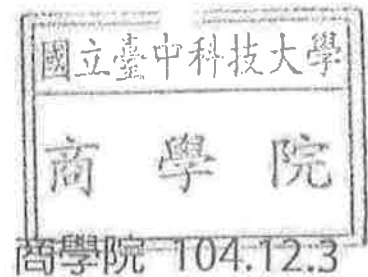 國立臺中科技大學
商學院
商學院 104.12.3